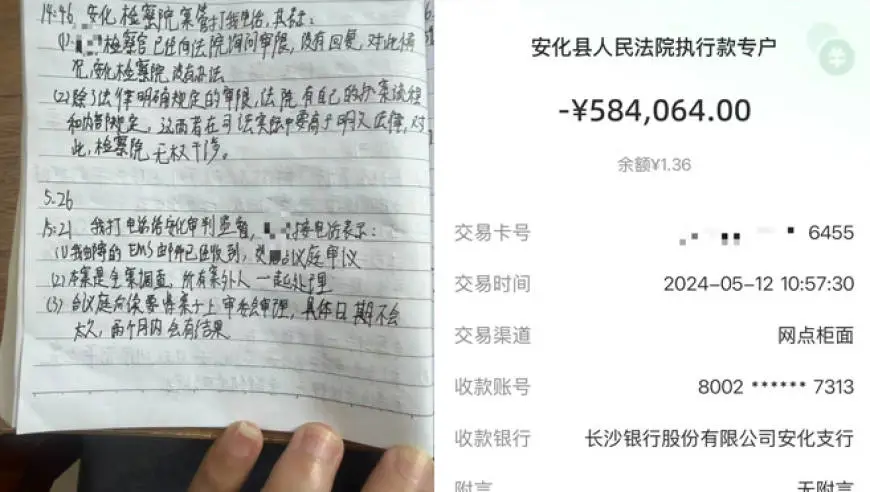 14:46 安化检察院案管打我电话，其表示：
(1) 检察官已经向法院询问审限，没有回复，对此情
况，安化检察院没有办法
(2)除了法律明确规定的审限，法院有自己的办案流程
和内部规定，这两者在司法实际中要高于明文法律，对
此，检察院无权干涉。
5.26
15:21 我打电话给安化审判监督，接电话表示：
(1)我邮寄的EMS邮件已经收到，合议庭审议
(2)本案是全案调查，所有案外人一起处理
(3)合议庭后续要将案子上审委会审理，具体日期不会
太久，两个月内会有结果
安化县人民法院执行款专户
-¥584,064.00
余额¥1.36
交易卡号 6455
交易时间 2024-05-12 10:57:30
交易渠道 网点柜面
收款账号 8002 ****** 7313
收款银行 长沙银行股份有限公司安化支行
附言 无附言